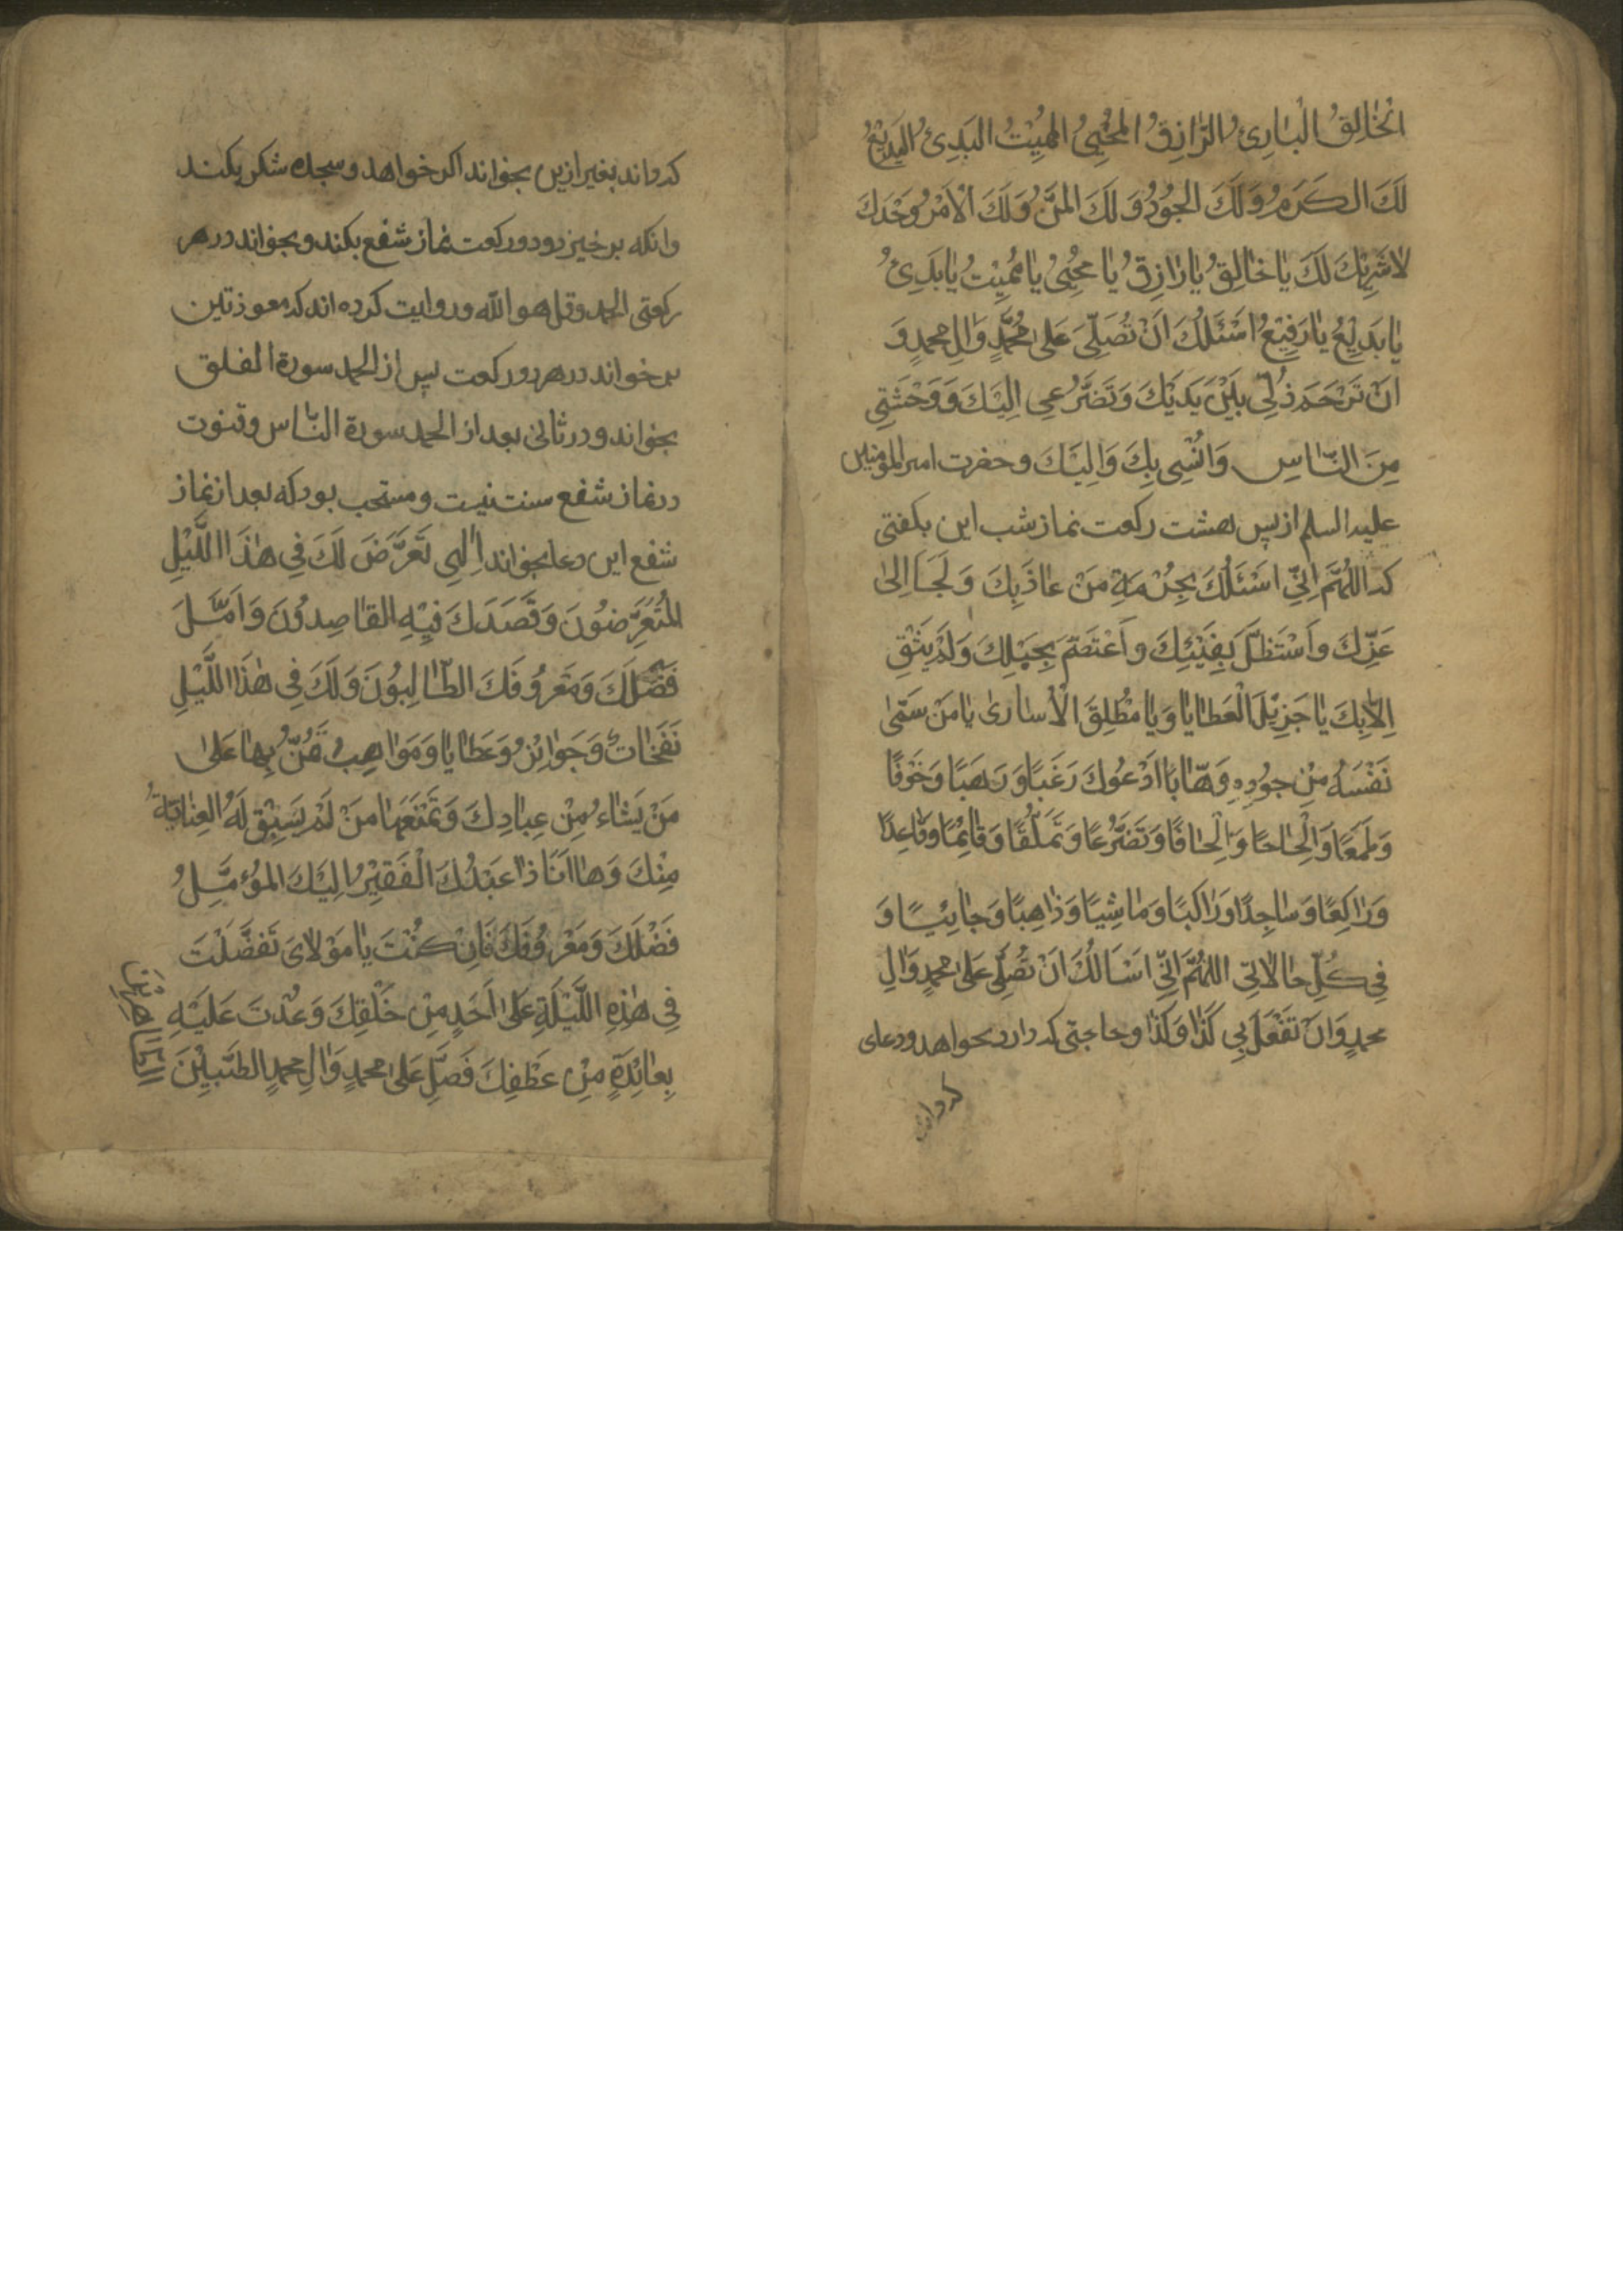 الْخٰالِقُ الْبٰارِئُ الرّٰازِقُ الْمُحْيِيُ الْمُمِيْتُ الْبَدِئُ الْبَدِيْعُ
لَكَ الْكَرَمُ وَلَكَ الْجُوْدُ وَلَكَ الْمَنُّ وَلَكَ الْاَمْرُ وَحْدَكَ
لاٰشَرِيْكَ لَكَ يٰا خٰالِقُ يٰا رٰازِقُ يٰا مُحْيِيُ يٰا مُمِيْتُ يٰا بَدِئُ
يٰا بَدِيْعُ يٰا رَفِيْعُ اَسْئَلُكَ اَنْ تُصَلِّيَ عَلىٰ مُحَمَّدٍ وَاٰلِ محمدٍ وَ
اَنْ تَرْحَمَ ذُلِّي بَيْنَ يَدَيْكَ وَتَضَرُّعِي اِلَيْكَ وَوَحْشَتِي
مِنَ النّٰاسِ وَاُنْسِي بِكَ وَاِلَيْكَ وحضرت امير المؤمنين
عليه السلم از پس هشت ركعت نماز شب اين بكفتى
كه اللّٰهُمَّ اِنِّي اَسْئَلُكَ بِحُرْمَةِ مَنْ عٰاذَ بِكَ وَلَجَأَ اِلىٰ
عِزِّكَ وَاسْتَظَلَّ بِفَيْئِكَ وَاعْتَصَمَ بِحَبْلِكَ وَلَمْ يَثِقْ
اِلاّٰ بِكَ يٰا جَزِيْلَ الْعَطٰايٰا وَيٰا مُطْلِقَ الْاُسٰارىٰ يٰا مَنْ سَمّٰى
نَفْسَهُ مِنْ جُوْدِهِ وَهّٰابًا اَدْعُوكَ رَغَبًا وَرَهَبًا وَخَوْفًا
وَطَمَعًا وَاِلْحٰاحًا وَاِلْحٰافًا وَتَضَرُّعًا وَتَمَلُّقًا وَقٰائِمًا وَقٰاعِدًا
وَرٰاكِعًا وَسٰاجِدًا وَرٰاكِبًا وَمٰاشِيًا وَذٰاهِبًا وَجٰائِيًا وَ
فِي كُلِّ حٰالاٰتِي اللّٰهُمَّ اِنِّي اَسْأَلُكَ اَنْ تُصَلِّيَ عَلىٰ محمدٍ وَاٰلِ
محمدٍ وَاَنْ تَفْعَلَ بِي كَذٰا وَكَذٰا وحاجتى كه دارد بخواهد ودعاى
كه داند
كه داند بغير ازين بخواند اكر خواهد وسجده شكر بكند
وانكه برخيزد ودو ركعت نماز شفع بكند وبخواند در هر
ركعتى الحمد وقل هو اللّٰه وروايت كرده اند كه معوذتين
بر خواند در هر دو ركعت پس از الحمد سورة الفلق
بخواند ودر ثانى بعد از الحمد سورة النّاس وقنوت
در نماز شفع سنت نيست ومستحب بود كه بعد از نماز
شفع اين دعا بخواند اِلٰهِي تَعَرَّضَ لَكَ فِي هٰذَا اللَّيْلِ
الْمُتَعَرِّضُوْنَ وَقَصَدَكَ فِيْهِ الْقٰاصِدُوْنَ وَاَمَّلَ
فَضْلَكَ وَمَعْرُوْفَكَ الطّٰالِبُوْنَ وَلَكَ فِي هٰذَا اللَّيْلِ
نَفَحٰاتٌ وَجَوٰائِزُ وَعَطٰايٰا وَمَوٰاهِبُ تَمُنُّ بِهٰا عَلىٰ
مَنْ يَشٰاءُ مِنْ عِبٰادِكَ وَتَمْنَعُهٰا مَنْ لَمْ يَسْبِقْ لَهُ الْعِنٰايَةُ
مِنْكَ وَهٰا اَنَا ذٰا عَبْدُكَ الْفَقِيْرُ اِلَيْكَ الْمُؤَمِّلُ
فَضْلَكَ وَمَعْرُوْفَكَ فَاِنْ كُنْتَ يٰا مَوْلاٰيَ تَفَضَّلْتَ
فِي هٰذِهِ اللَّيْلَةِ عَلىٰ اَحَدٍ مِنْ خَلْقِكَ وَعُدْتَ عَلَيْهِ
بِعٰائِدَةٍ مِنْ عَطْفِكَ فَصَلِّ عَلىٰ محمدٍ وَاٰلِ محمدٍ الطَّيِّبِيْنَ
الطّٰاهِرِيْنَ